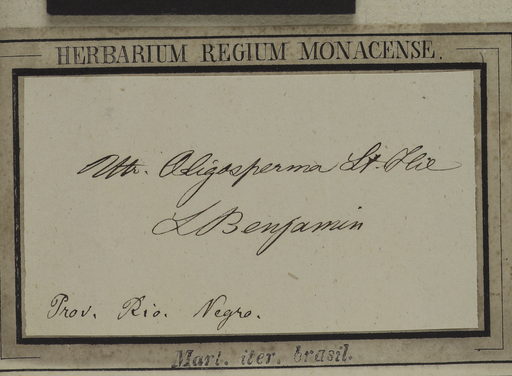 HERBARIUM REGIUM MONACENSE.
Utr. Oligosperma St. Hil
L Benjamin
Prov. Rio. Negro.
Mart. iter. brasil.